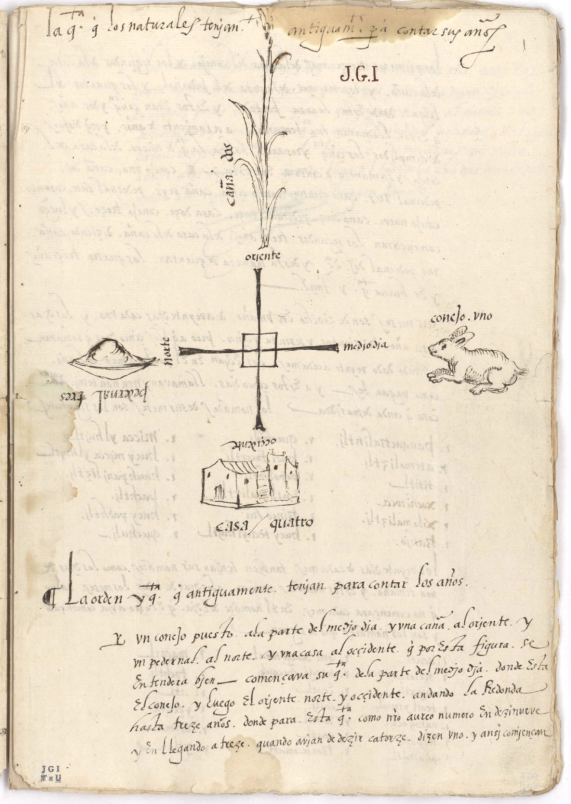 la q.ta q̃ los naturales tenjan antiguam.te pa contar sus años
J.G.I
caña. dos
oriente
conejo. vno
norte
medjodia
pedernal tres
occidente
casa quatro
¶ La orden y q.ta q̃ antiguamente. tenjan para contar los años.
vn conejo puesto. ala parte del medjo dia. y vna caña. al orjente. y
vn pedernal. al norte. y vna casa al occidente. q̃ por esta figura. se
entendera bjen comencava su q.ta dela parte del medjo dja. donde esta
el conejo. y luego el orjente norte. y occidente. andando la Redonda
hasta treze años. donde para. esta q.ta como nr̃o aureo numero en dezinueve
y en llegando a treze. quando avjan de dezir catorze. dizen vno. y ansj comjençan
JGI